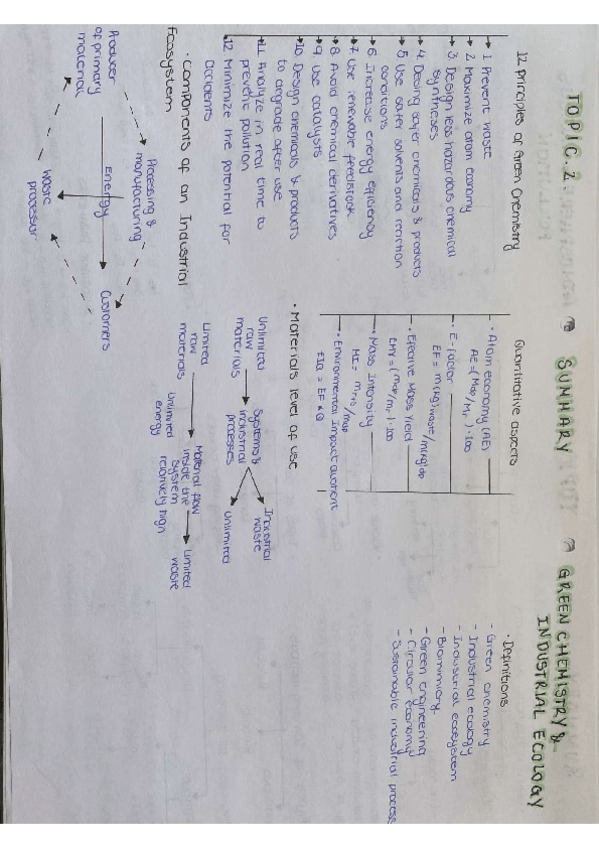 TOPIC. 2 SUMMARY GREEN CHEMISTRY & INDUSTRIAL ECOLOGY
12 Principles of Green Chemistry
1 Prevent waste
2. Maximize atom economy
3. Design less hazardous chemical
syntheses
4. Desing safer chemicals & products
5 Use safer solvents and reaction
conditions
6 Increase energy efficiency
7 Use renewable feedstock
8 Avoid chemical derivatives
9. Use catalysts
10 Design chemicals & products
to degrade after use
11 Analyze in real time to
prevent pollution
12 Minimize the potential for
accidents
· Components of an Industrial
Ecosystem
Producer
of primary
material
Processing &
manufacturing
Energy
Waste
processor
Customers
Quantitative aspects
· Atom economy (AE)
AE = (Map/Mr) · 100
· E. factor
EF = m(kg)waste/m(kg)dp
· Effective Mass Yield
EMY = (map/mr) · 100
· Mass Intensity
MI = mrs/map
· Environmental Impact quotient
EIQ = EF x Q
· Materials level of use
Unlimited
raw
materials
Systems &
industrial
processes
Industrial
waste
Unlimited
Limited
raw
materials
Unlimited
energy
Material flow
inside the
system
relatively high
Limited
waste
· Definitions
- Green chemistry
- Industrial ecology
- Industrial ecosystem
- Biomimicry
- Green engineering
- Circular economy
- Sustainable industrial process